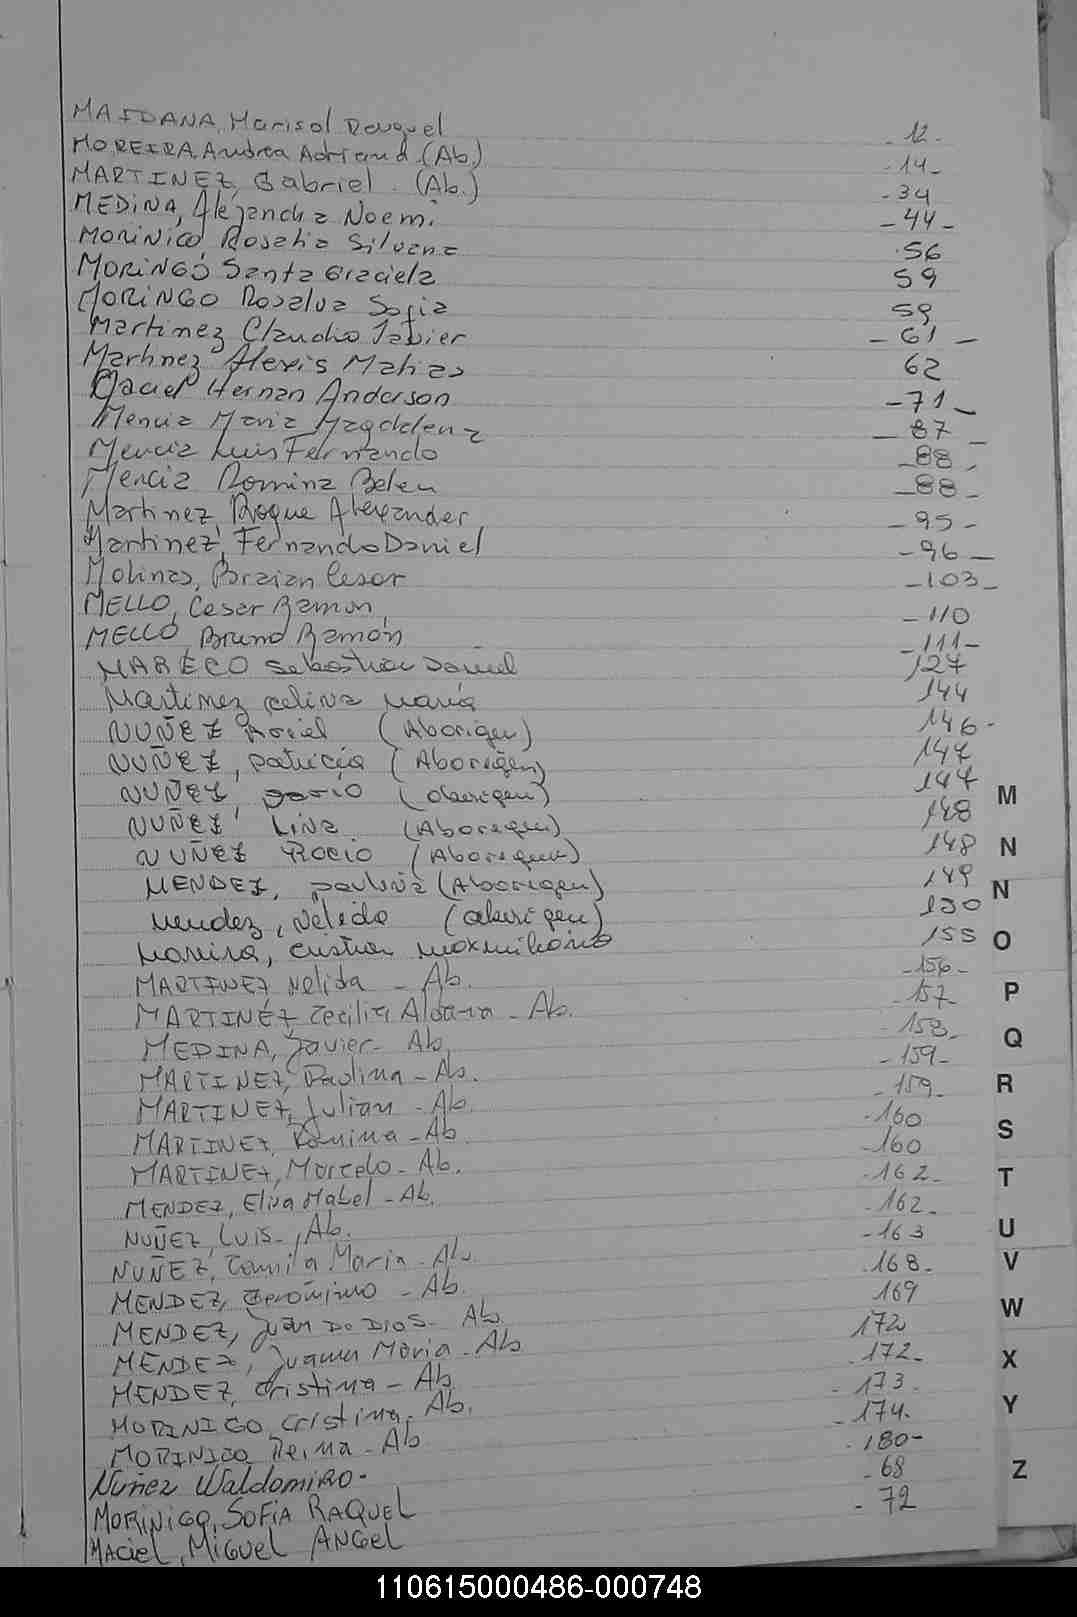 MAIDANA, Marisol Raquel 12.
MOREIRA, Andrea Adriana (Ab.) -14-
MARTINEZ, Gabriel. (Ab.) -34
MEDINA, Alejandra Noemi -44-
MORINICO, Rosalia Silvana 56
MORINGÓ Santa Graciela 59
MORINGO Rosalva Sofia 59
Martinez Claudio Javier -61-
Martinez Alexis Matias 62
Maciel Hernan Anderson -71-
Mencia Maria Magdalena -87-
Mencia Luis Fernando -88-
Mencia Romina Belen -88-
Martinez, Roque Alexander -95-
Martinez, Fernando Daniel -96-
Molinas, Braian Cesar -103-
MELLO, Cesar Ramon -110
MELLO, Bruno Ramón -111-
MARECO Sebastian Daniel 127
Martinez Celina María 144
NUÑEZ Rociel (Aborigen) 146-
NUÑEZ, Patricia (Aborigen) 147
NUÑEZ, Dario (aborigen) 147
NUÑEZ Lina (Aborigen) 148
NUÑEZ Rocio (Aborigen) 148
MENDEZ, Paulina (Aborigen) 149
Mendez, Nelida (aborigen) 150
Moreira, Cristian Maximiliano 155
MARTINEZ Nelida - Ab. -156-
MARTINEZ Cecilia Aldana - Ab. -157-
MEDINA, Javier - Ab. -158-
MARTINEZ, Paulina - Ab. -159-
MARTINEZ, Julian - Ab. -159-
MARTINEZ, Romina - Ab. -160
MARTINEZ, Marcelo - Ab. -160
MENDEZ, Elisa Mabel - Ab. -162-
NUÑEZ, Luis -, Ab. -162-
NUÑEZ, Camila Maria - Ab. -163
MENDEZ, Gerónimo - Ab. 168-
MENDEZ, Juan De Dios - Ab. 169
MENDEZ, Juana Maria - Ab 172
MENDEZ, Cristina - Ab. 172-
MORINIGO, Cristina, Ab. -173-
MORINIGO, Reina - Ab -174-
Nuñez Waldomiro- -180-
MORINIGO, SOFIA RAQUEL -68
MACiel, MIGUEL ANGEL - 72
M
N
N
O
P
Q
R
S
T
U
V
W
X
Y
Z
110615000486-000748